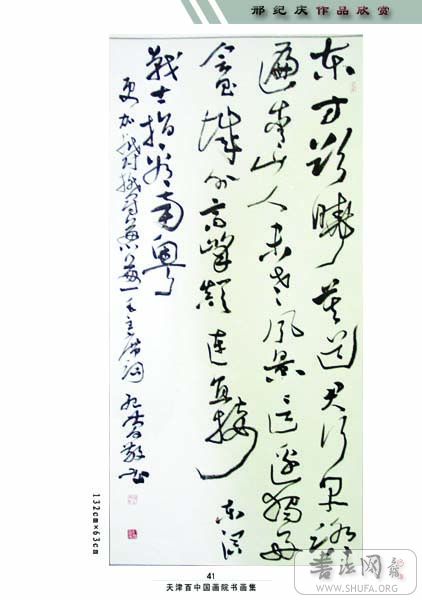 邢纪庆作品欣赏
东方欲晓莫道君行早踏
遍青山人未老风景这边独好
会昌城外高峰颠连直接东溟
战士指看南粤
更加郁郁葱葱 毛主席词 纪庆敬书
132cm×63cm
41
天津百中国画院书画集
書法网
WWW.SHUFA.ORG